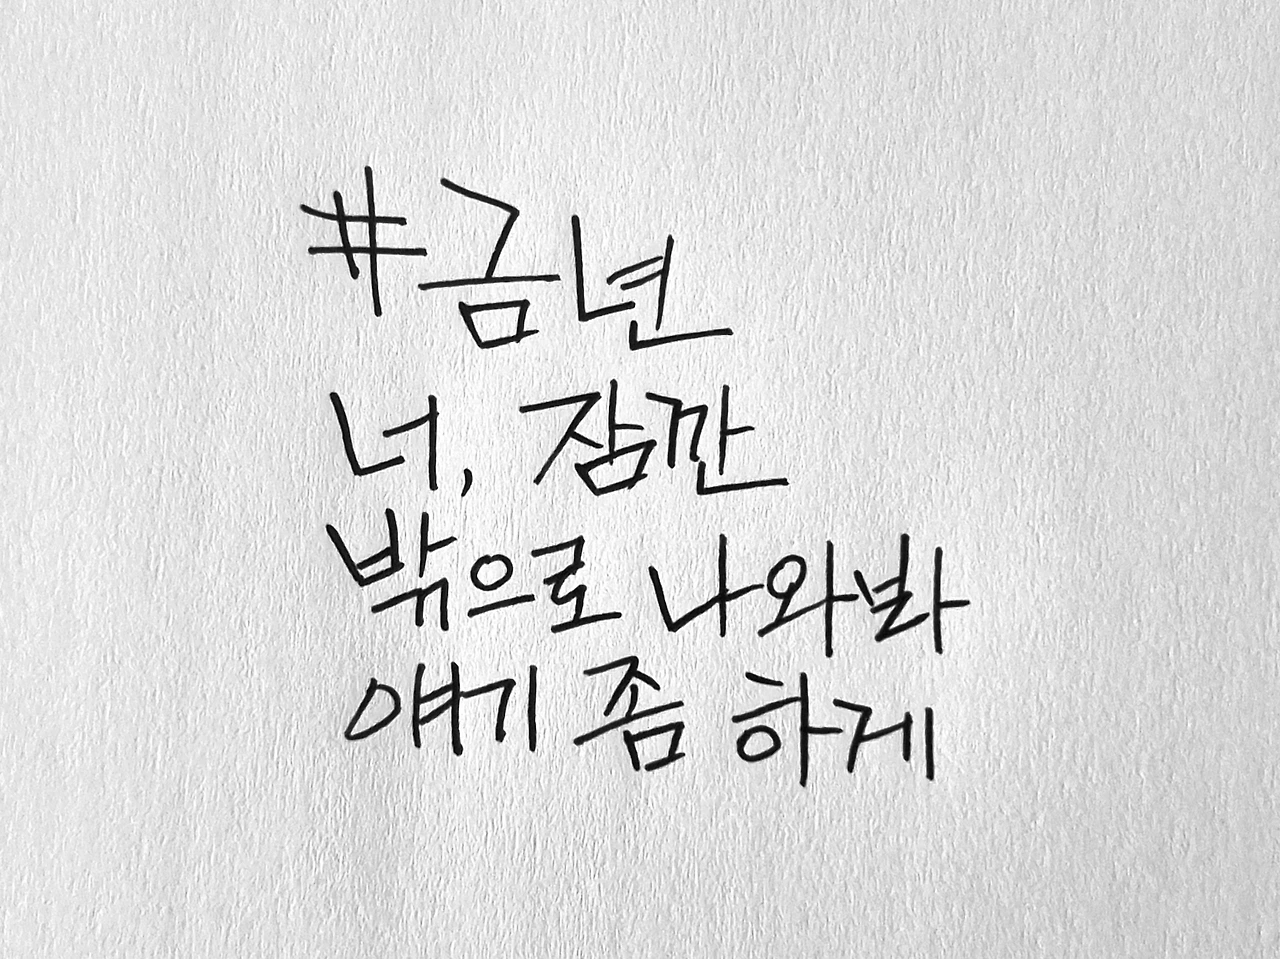 #금년
너, 잠깐
밖으로 나와봐
얘기 좀 하게